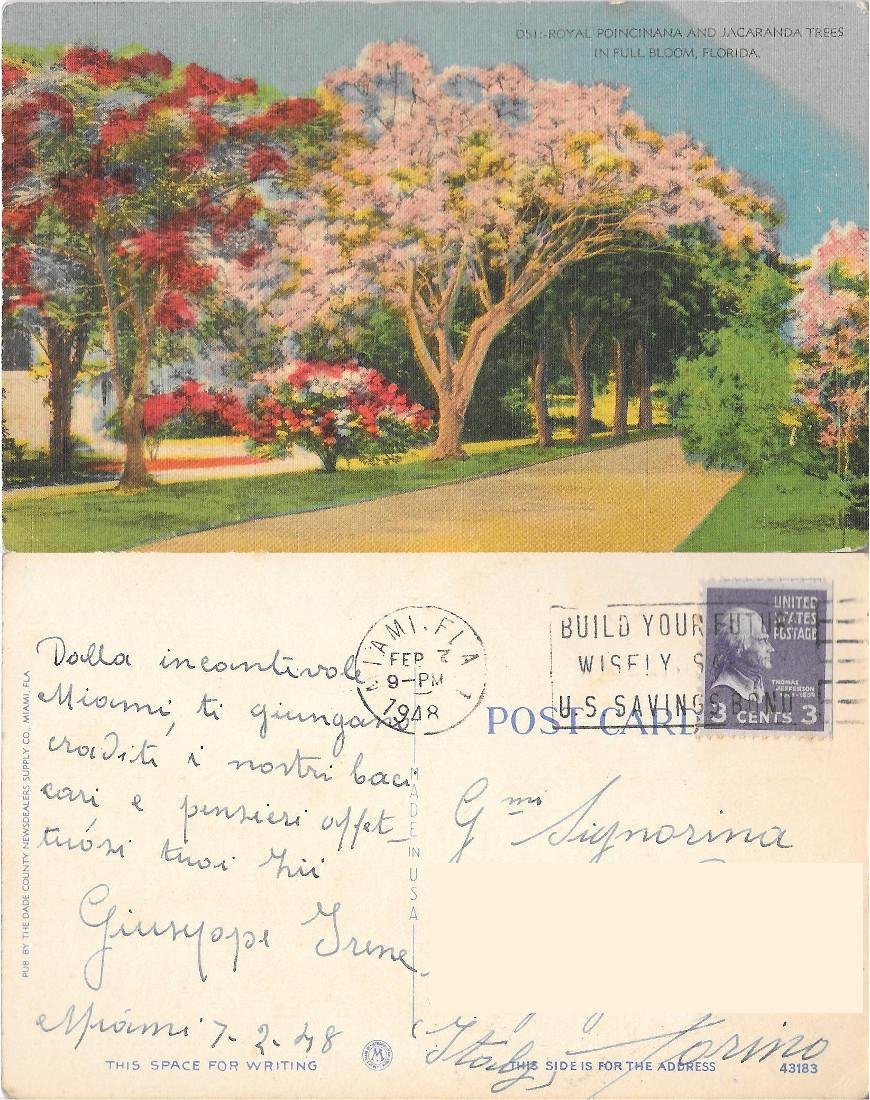 D51:-ROYAL POINCINANA AND JACARANDA TREES
IN FULL BLOOM, FLORIDA.
PUB. BY THE DADE COUNTY NEWSDEALERS SUPPLY CO., MIAMI, FLA
Dalla incantevole
Miami, ti giungano
graditi i nostri baci
cari e pensieri affet-
tuósi tuoi zii
Giuseppe Irene
Miami 7-2-48
THIS SPACE FOR WRITING
MIAMI, FLA
FEB
9-PM
1948
BUILD YOUR FUTURE
WISELY, SA
U.S. SAVINGS BOND
UNITED
STATES
POSTAGE
THOMAS
JEFFERSON
3 CENTS 3
POST CARD
MADE IN USA
Gmi Signorina
Italy, Torino
THIS SIDE IS FOR THE ADDRESS
43183